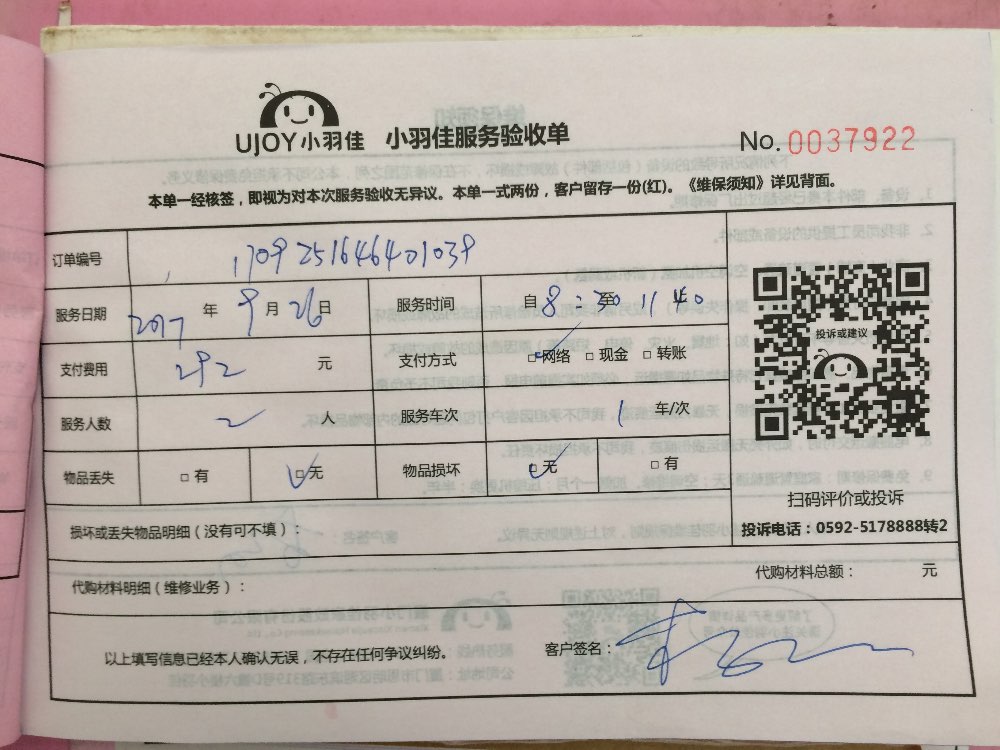 UJOY小羽佳 小羽佳服务验收单
No. 0037922
本单一经核签，即视为对本次服务验收无异议。本单一式两份，客户留存一份(红)。《维保须知》详见背面。
订单编号 1709251646401039
服务日期 2017 年 9 月 26 日 服务时间 自 8:30 至 11 40
支付费用 292 元 支付方式 □网络 □现金 □转账
服务人数 2 人 服务车次 1 车/次
物品丢失 □有 □无 物品损坏 □无 □有
投诉或建议
扫码评价或投诉
投诉电话：0592-5178888转2
损坏或丢失物品明细（没有可不填）：
代购材料明细（维修业务）： 代购材料总额： 元
以上填写信息已经本人确认无误，不存在任何争议纠纷。 客户签名：